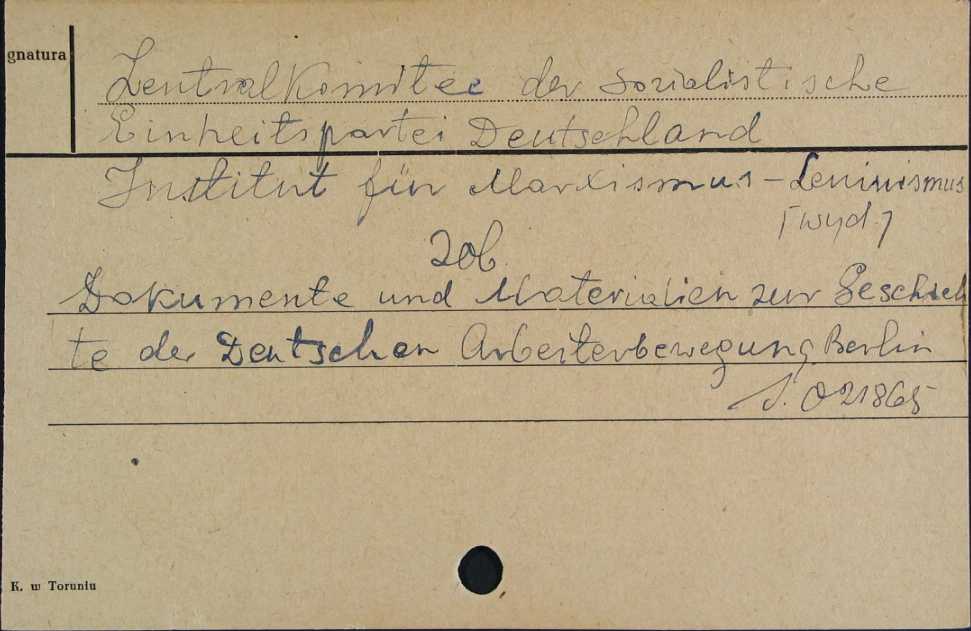 gnatura
Zentralkomitee der Sozialistische
Einheitspartei Deutschland
Institut für Marxismus-Leninismus
[wyd.]
Zob.
Dokumente und Materialien zur Geschich
te der Deutschen Arbeiterbewegung Berlin
S. 021865
K. w Toruniu